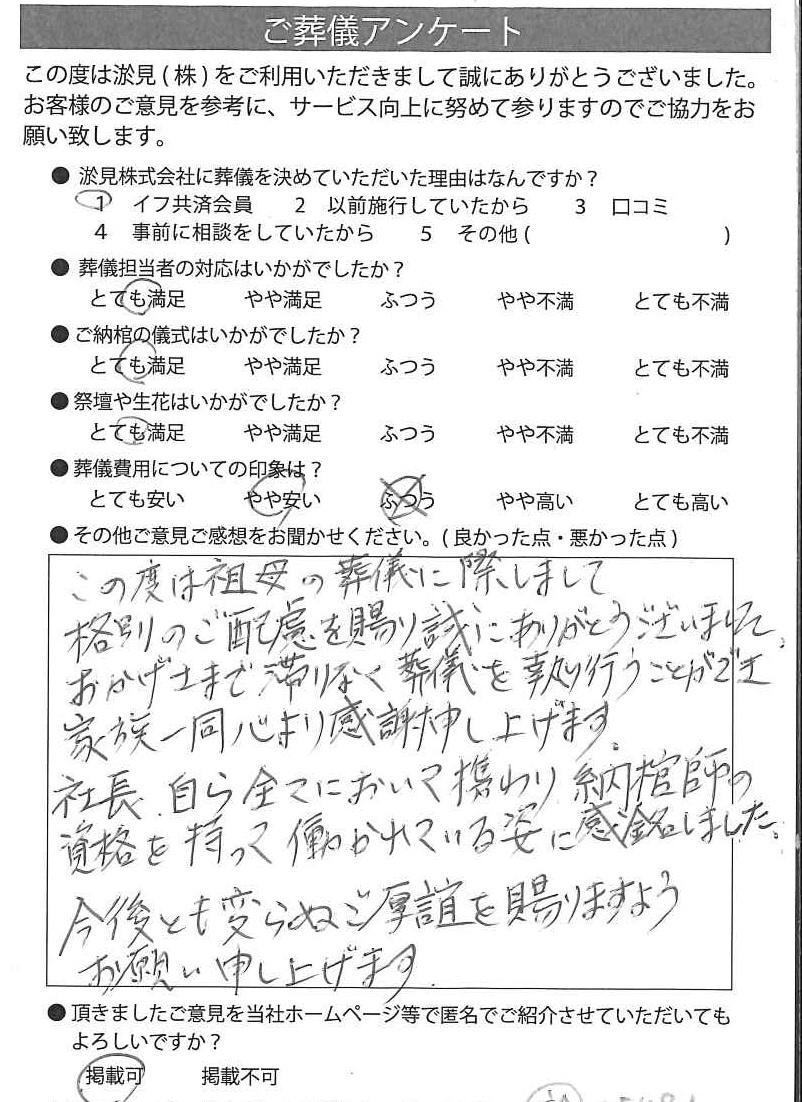 ご葬儀アンケート
この度は淤見(株)をご利用いただきまして誠にありがとうございました。
お客様のご意見を参考に、サービス向上に努めて参りますのでご協力をお
願い致します。
● 淤見株式会社に葬儀を決めていただいた理由はなんですか?
1 イフ共済会員 2 以前施行していたから 3 口コミ
4 事前に相談をしていたから 5 その他( )
● 葬儀担当者の対応はいかがでしたか?
とても満足 やや満足 ふつう やや不満 とても不満
● ご納棺の儀式はいかがでしたか?
とても満足 やや満足 ふつう やや不満 とても不満
● 祭壇や生花はいかがでしたか?
とても満足 やや満足 ふつう やや不満 とても不満
● 葬儀費用についての印象は?
とても安い やや安い ふつう やや高い とても高い
● その他ご意見ご感想をお聞かせください。(良かった点・悪かった点)
この度は祖母の葬儀に際しまして
格別のご配慮を賜り誠にありがとうございまして、
おかげさまで滞りなく葬儀を執り行うことができ
家族一同心より感謝申し上げます
社長自ら全てにおいて携わり納棺師の
資格を持って働かれている姿に感銘しました。
今後とも変らぬご厚誼を賜りますよう
お願い申し上げます.
● 頂きましたご意見を当社ホームページ等で匿名でご紹介させていただいても
よろしいですか?
掲載可 掲載不可